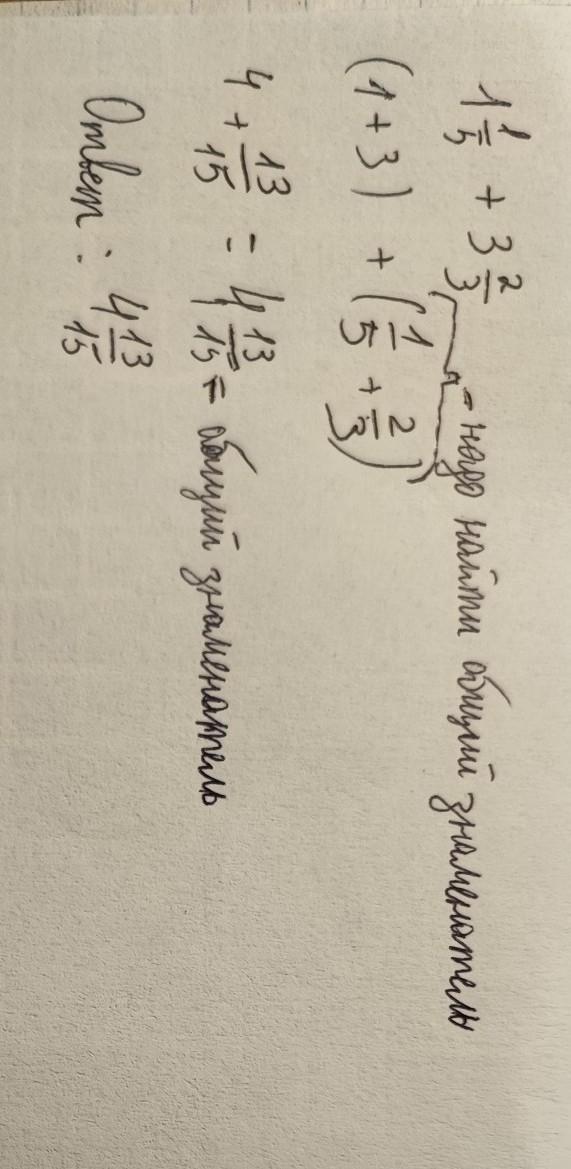 1 1/5 + 3 2/3 - надо найти общий знаменатель
(1+3) + (1/5 + 2/3)
4 + 13/15 = 4 13/15 = общий знаменатель
Ответ: 4 13/15